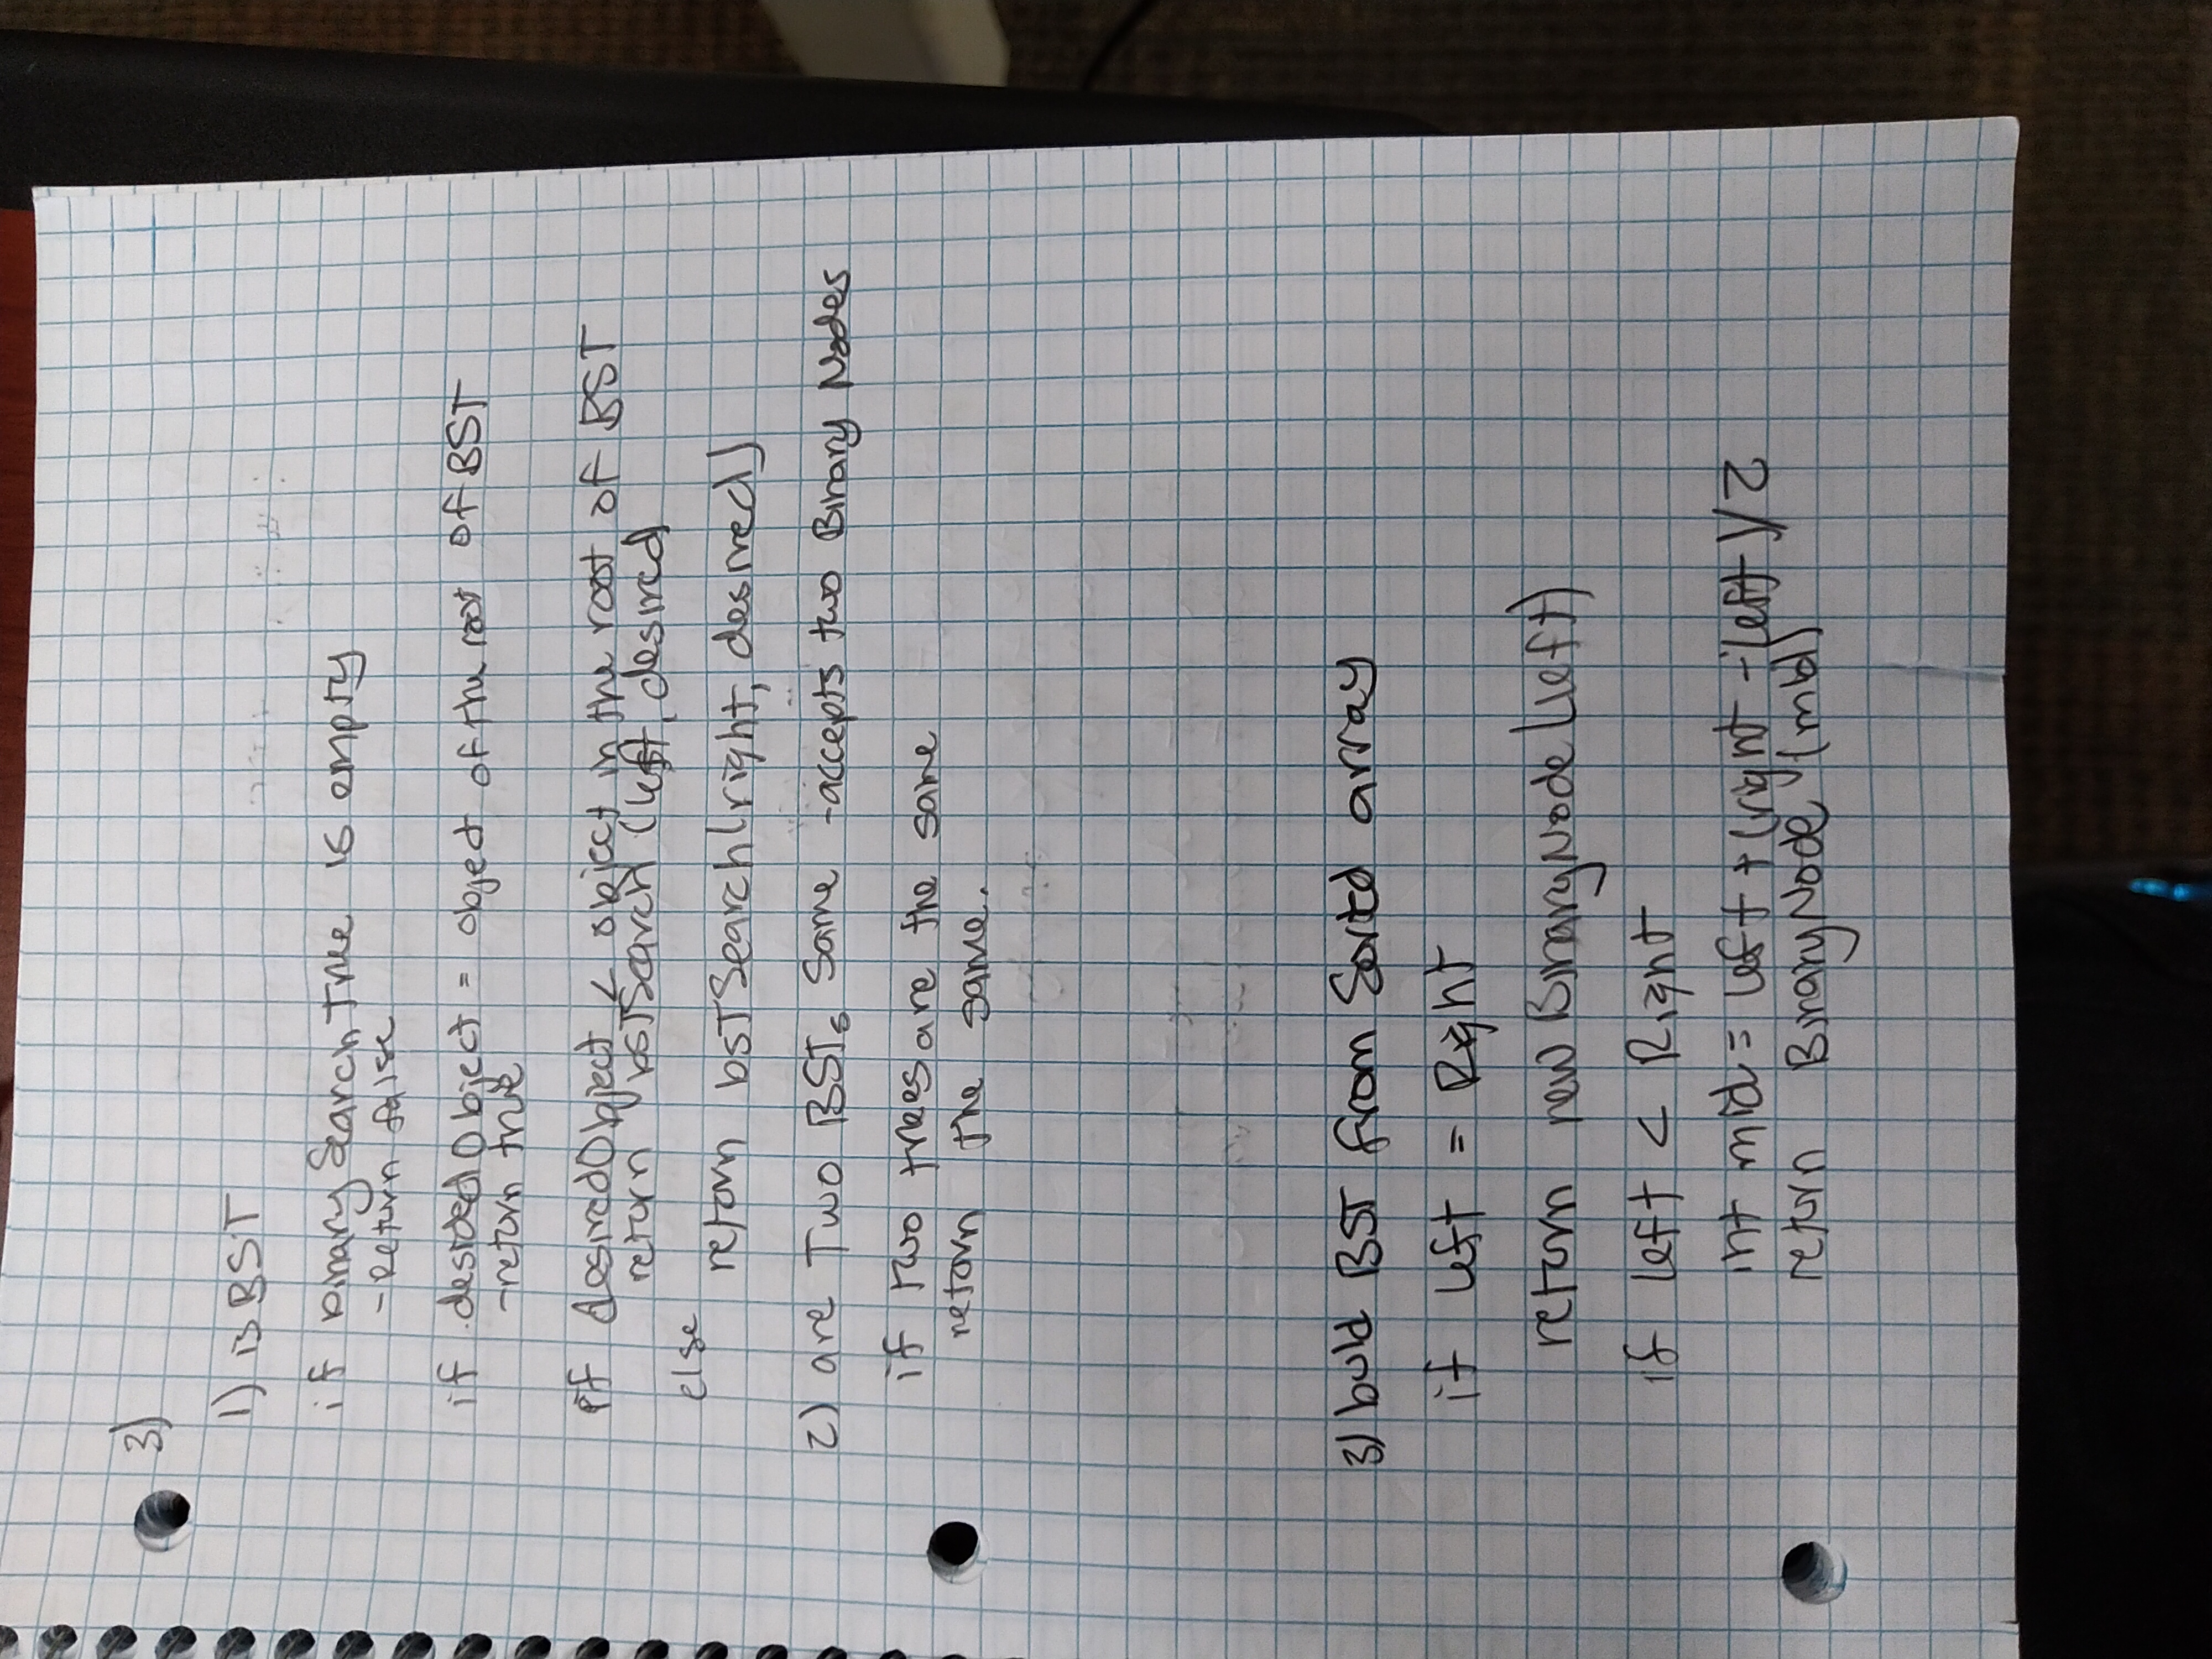 3)
1) is BST
if binarySearchTree is empty
- Return false
if desiredObject = object of the root of BST
- return true
if desiredObject < object in the root of BST
return bSTSearch (left, desired
else
return bSTSearch(right, desired)
2) are Two BSTs Same - accepts two Binary Nodes
if two trees are the same
return the same.
3) buld BST from Sortd array
if left = Right
return new BinaryNode (left)
if left < Right
int mid = left + (right - left)/2
return BinaryNode (mid)